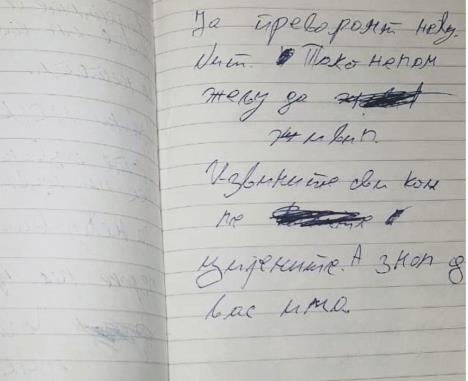 Ја преварот неку.
Иит. Тако непом
желу да
живип.
Извините сви ком
пе
цијените. А зноп д
вас има.